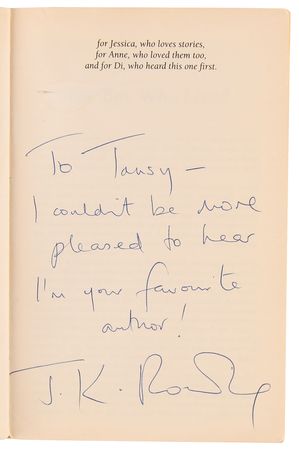 for Jessica, who loves stories,
for Anne, who loved them too,
and for Di, who heard this one first.
To Tansy –
I couldn't be more
pleased to hear
I'm your favourite
author!
J.K. Rowling